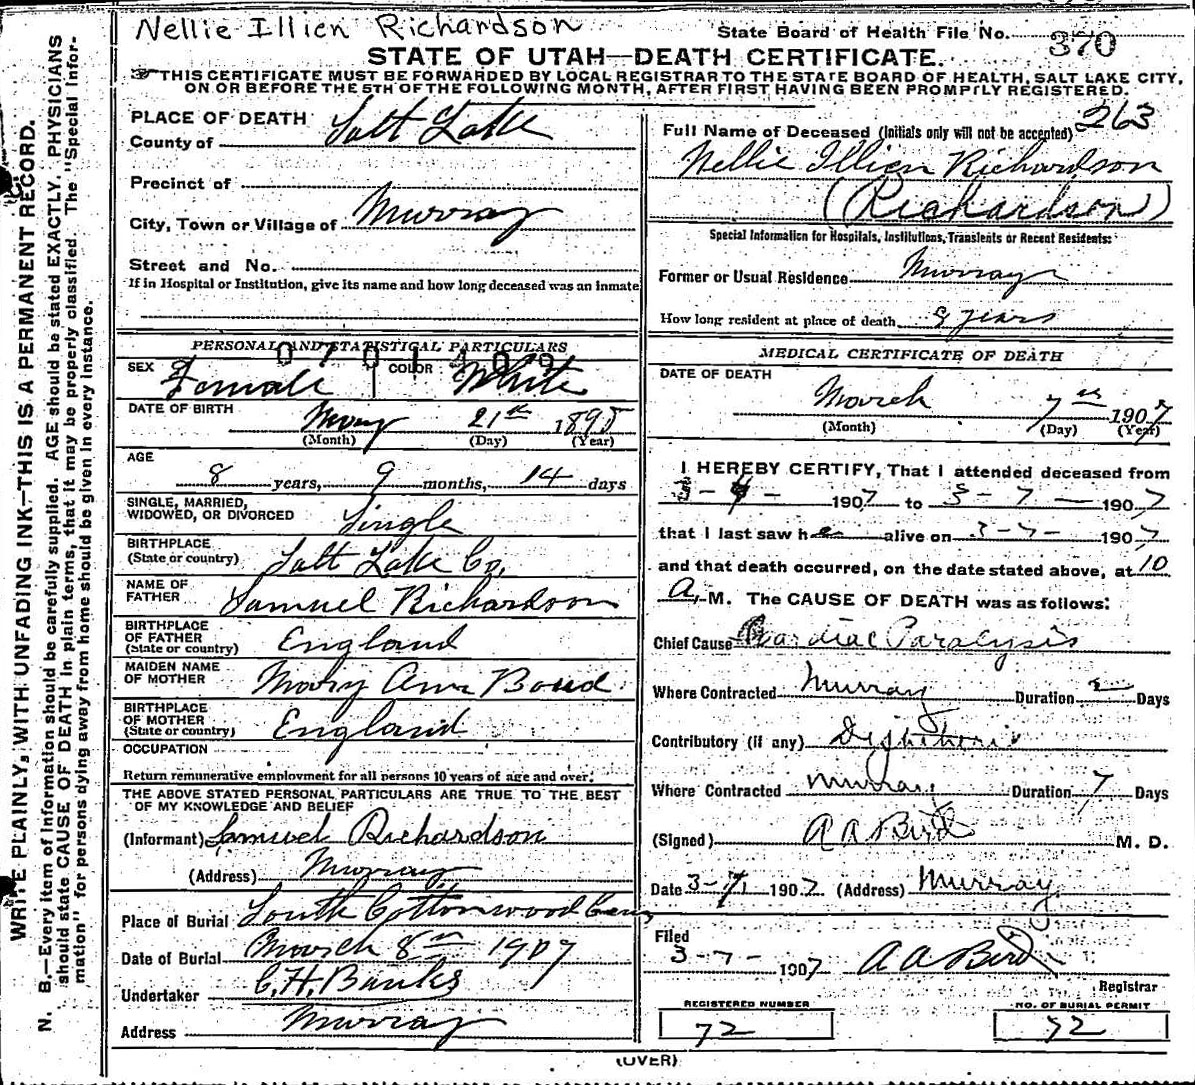 Nellie Illien Richardson
State Board of Health File No. 370
STATE OF UTAH—DEATH CERTIFICATE.
THIS CERTIFICATE MUST BE FORWARDED BY LOCAL REGISTRAR TO THE STATE BOARD OF HEALTH, SALT LAKE CITY,
ON OR BEFORE THE 5TH OF THE FOLLOWING MONTH, AFTER FIRST HAVING BEEN PROMPTLY REGISTERED.
WRITE PLAINLY, WITH UNFADING INK—THIS IS A PERMANENT RECORD.
N. B.—Every item of information should be carefully supplied. AGE should be stated EXACTLY. PHYSICIANS
should state CAUSE OF DEATH in plain terms, that it may be properly classified. The "Special Infor-
mation" for persons dying away from home should be given in every instance.
PLACE OF DEATH
County of Salt Lake
Precinct of
City, Town or Village of Murray
Street and No.
If in Hospital or Institution, give its name and how long deceased was an inmate
PERSONAL AND STATISTICAL PARTICULARS
0701409
SEX Female COLOR White
DATE OF BIRTH May 21st 1898
(Month) (Day) (Year)
AGE
8 years, 9 months, 14 days
SINGLE, MARRIED,
WIDOWED, OR DIVORCED Single
BIRTHPLACE
(State or country) Salt Lake Co.
NAME OF
FATHER Samuel Richardson
BIRTHPLACE
OF FATHER
(State or country) England
MAIDEN NAME
OF MOTHER Mary Ann Boud
BIRTHPLACE
OF MOTHER
(State or country) England
OCCUPATION
Return remunerative employment for all persons 10 years of age and over.
THE ABOVE STATED PERSONAL PARTICULARS ARE TRUE TO THE BEST
OF MY KNOWLEDGE AND BELIEF
(Informant) Samuel Richardson
(Address) Murray
Place of Burial South Cottonwood Cem
Date of Burial March 8th 1907
Undertaker C. H. Banks
Address Murray
263
Full Name of Deceased (Initials only will not be accepted)
Nellie Illien Richardson
(Richardson)
Special Information for Hospitals, Institutions, Transients or Recent Residents:
Former or Usual Residence Murray
How long resident at place of death 8 years
MEDICAL CERTIFICATE OF DEATH
DATE OF DEATH
March 7th 1907
(Month) (Day) (Year)
I HEREBY CERTIFY, That I attended deceased from
4 - 1907 to 3-7- 1907
that I last saw her alive on 3-7- 1907
and that death occurred, on the date stated above, at 10
A. M. The CAUSE OF DEATH was as follows:
Chief Cause Cardiac Paralysis
Where Contracted Murray Duration 2 Days
Contributory (if any) Diphtheria
Where Contracted Murray Duration 7 Days
(Signed) A A Bird M. D.
Date 3-7, 1907 (Address) Murray
Filed
3-7- 1907 A A Bird
Registrar
REGISTERED NUMBER
72
NO. OF BURIAL PERMIT
72
(OVER)